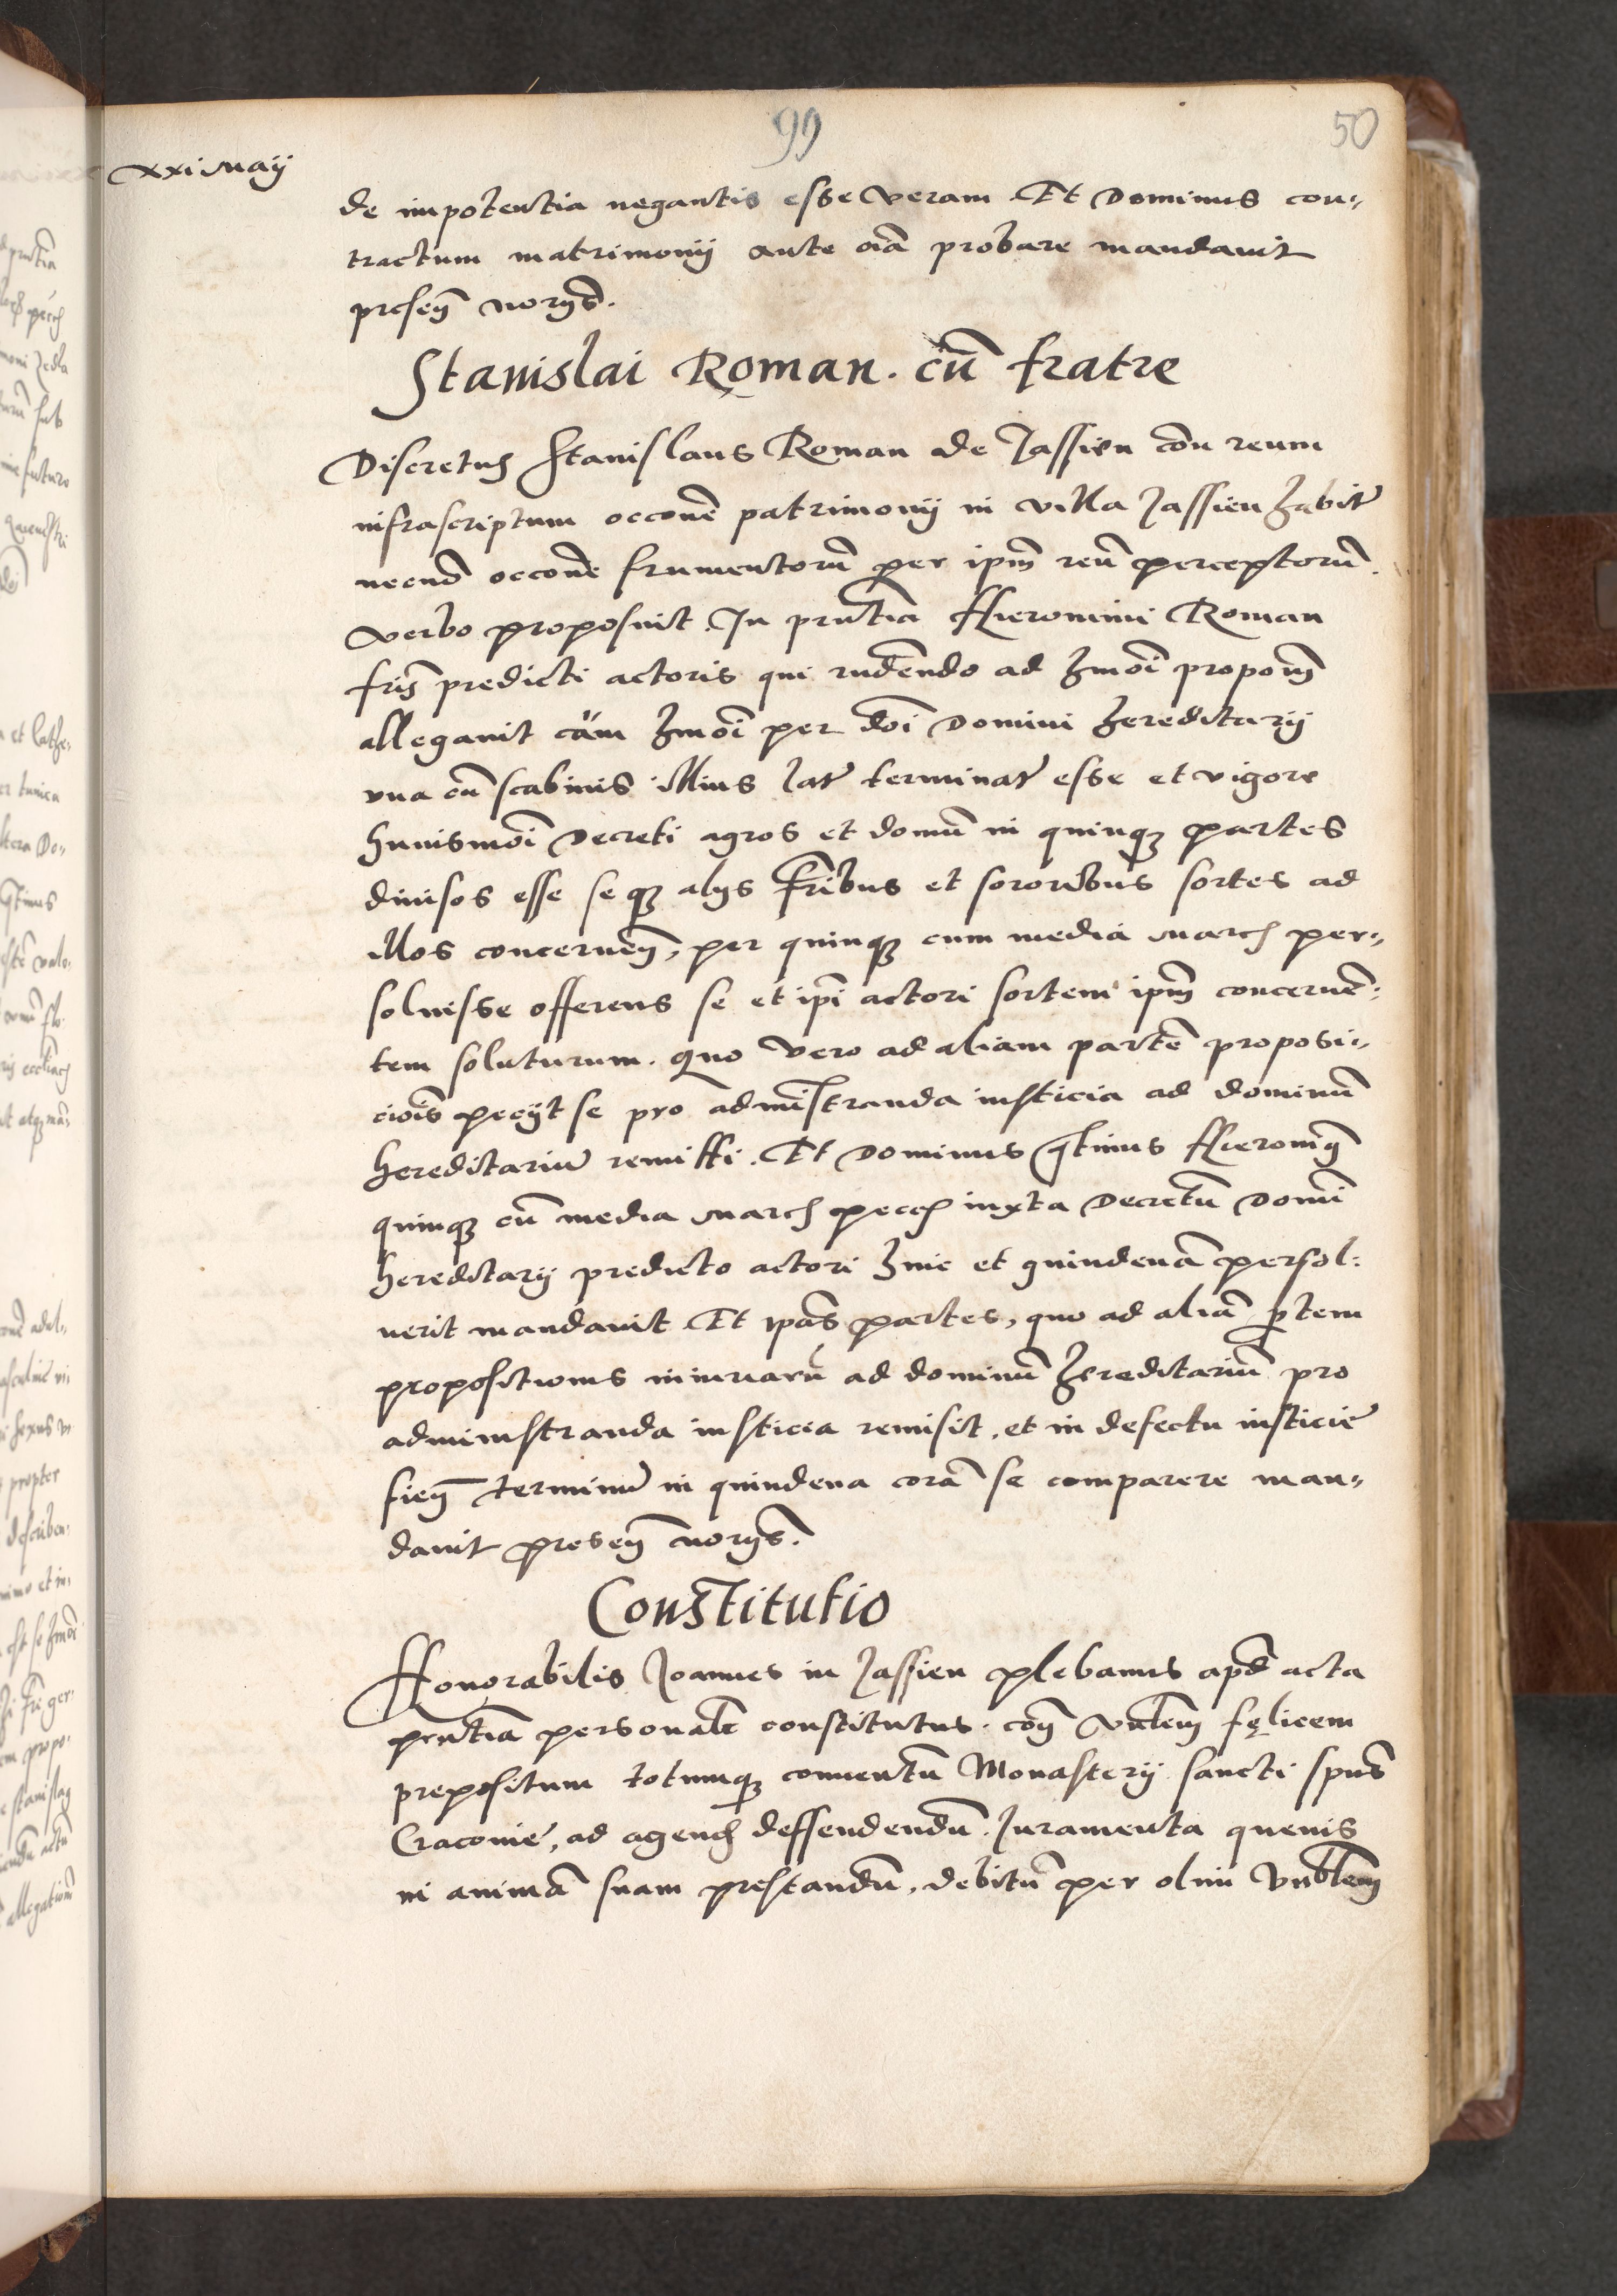 99
50
xxi Maij
de impotentia negantis esse veram. Et Dominus con-
tractum matrimonij ante oīa probare mandavit
preseñ norijs.
Stanislai Roman. cū fratre
Discretus Stanislaus Roman de Jassien con reum
infrascriptum occōne patrimonij in villa Jassien habit
necnō occōne frumentorū per ipm reū perceptorū.
verbo proposuit. In pntia Hieronimi Roman
fris predicti actoris qui rndendo ad hmōi propom
allegavit cām hmōi per dōi Domini hereditarij
una cū scabinis illius lat terminat esse et vigore
huiusmōi Decreti agros et domū in quinqz partes
divisos esse seqz alijs fribus et sororibus sortes ad
illos concerneñ, per quinqz cum media march per-
solvisse offerens se et ipi actori sortem ipm concernē-
tem soluturum. quo vero ad aliam partē proposi-
cōis pecijt se pro administranda iusticia ad dominū
hereditariū remitti. Et Dominus qtinus Hieronimus
quinqz cū media march pecch iuxta Decretū Domi
hereditarij predicto actori hinc et quindenā persol-
verit mandavit. Et ipas partes, quo ad aliā ptem
propositionis iniuriarū ad dominū hereditariū pro
administranda iusticia remisit, et in defectu iusticie
fieñ terminū in quindena corā se comparere man-
davit preseñ norijs.
Constitutio
Honorabilis Joannes in Jassien plebanus apd acta
pntia personalr constitutus. con Vnblem fęlicem
prepositum totumqz conventū Monasterij sancti spus
Cracovie, ad agend deffendendū. Juramenta quevis
in animā suam prestandū, debitū per olim Vnblem